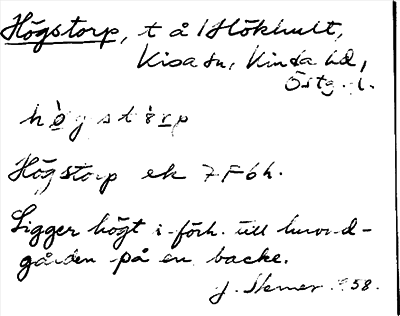 Högstorp, t å /Hökhult,
Kisa sn, Kinda hd,
Östg. l.
högstòrp
Högstorp ek 7F6h.
Ligger högt i förh. till huvud-
gården på en backe.
J. 1958.